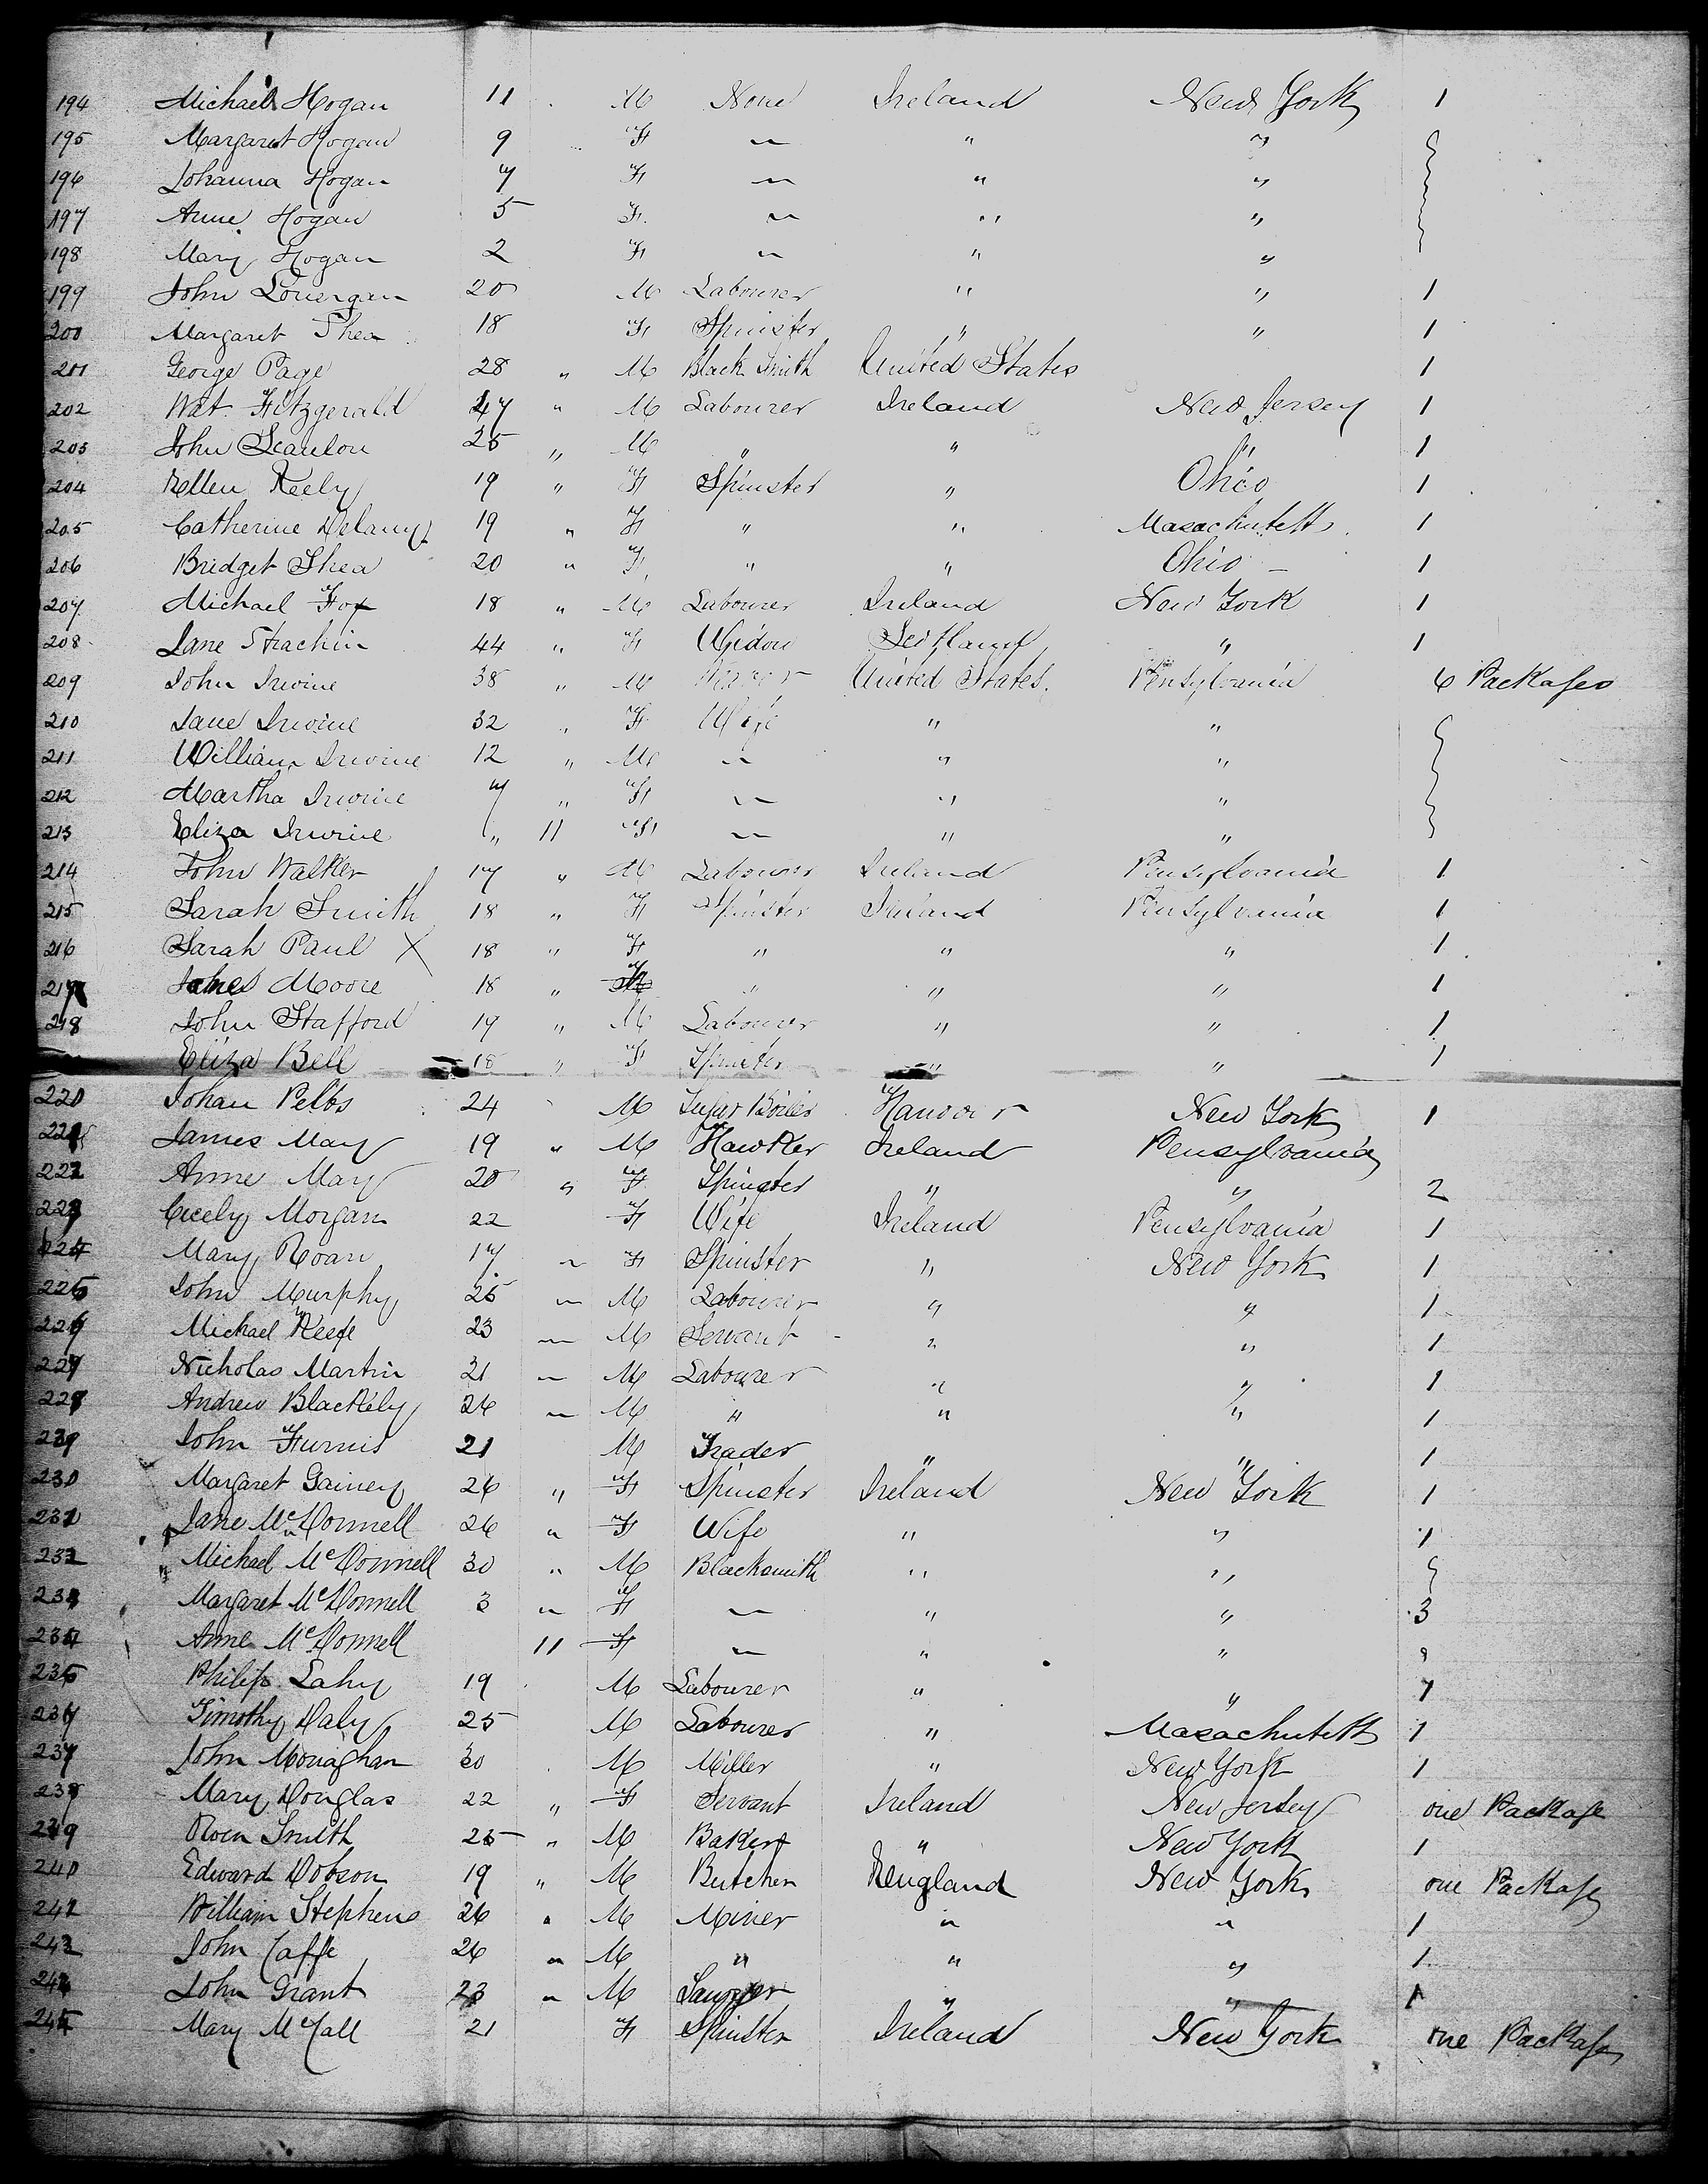 194 Michael Hogan 11 . M None Ireland New York 1
195 Margaret Hogan 9 F — " "
196 Johanna Hogan 7 F — " "
197 Anne Hogan 5 F — " "
198 Mary Hogan 2 F — " "
199 John Lonergan 20 M Labourer " " 1
200 Margaret Shea 18 F Spinster " " 1
201 George Page 28 " M Black Smith United States 1
202 Wat. Fitzgerald 47 " M Labourer Ireland New Jersey 1
203 John Scanlon 25 " M " " " 1
204 Ellen Keely 19 " F Spinster " Ohio 1
205 Catherine Delany 19 " F " " Masachutetts 1
206 Bridget Shea 20 " F " " Ohio – 1
207 Michael Fox 18 " M Labourer Ireland New York 1
208 Jane Strachin 44 " F Widow Scotland " 1
209 John Irvine 38 " M United States. Pensylvania 6 Packages
210 Jane Irvine 32 " F Wife " "
211 William Irvine 12 " M — " "
212 Martha Irvine 7 " F — " "
213 Eliza Irvine " 11 F — " "
214 John Walker 17 " M Labourer Ireland Pensylvania 1
215 Sarah Smith 18 " F Spinster Ireland Pensylvania 1
216 Sarah Paul X 18 " F " " " 1
217 Moore 18 " F " " " 1
218 John Stafford 19 " M Labourer " " 1
Eliza Bell 18 " F Spinster " " 1
220 Johan Pelbs 24 M Sugar Boiler Hanover New York 1
221 James May 19 " M Hawker Ireland Pensylvania
222 Anne May 20 " F Spinster " " 2
223 Cicely Morgan 22 F Wife Ireland Pensylvania 1
224 Mary Roan 17 — F Spinster " New York 1
225 John Murphy 25 — M Labourer " " 1
226 Michael Keefe 23 — M Servant " " 1
227 Nicholas Martin 21 — M Labourer " " 1
228 Andrew Blackely 26 — M " " " 1
229 John Furnis 21 M Trader " " 1
230 Margaret Gainey 26 " F Spinster Ireland New York 1
231 Jane McDonnell 26 " F Wife " " 1
232 Michael McDonnell 30 " M Blacksmith " "
233 Margaret McDonnell 3 — F — " " 3
234 Anne McDonnell 11 F — " "
235 Philip Lahy 19 M Labourer " " 1
236 Timothy Daly 25 M Labourer " Masachutetts 1
237 John Monaghan 30 M Miller " New York 1
238 Mary Douglas 22 " F Servant Ireland New Jersey one Package
239 Owen Smith 25 " M Baker " New York 1
240 Edward Dobson 19 " M Butcher England New York one Package
241 William Stephens 26 " M Miner " " 1
242 John Caffe 26 " M " " " 1
243 John Grant 23 " M Sawyer " " 1
Mary McCall 21 F Spinster Ireland New York one Package